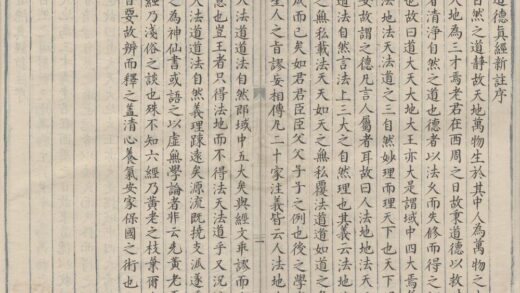 道德真經新註序
自然之道靜故天地萬物生於其中人為萬物之
天地為三才焉老君在西周之日故秉道德以救
者清淨自然之道也德者以法久而失修而得之
也故曰道大天大地大王亦大是謂域中四大焉
法地法天法道之三自然妙理而理天下也天下
安故謂之德凡言人屬者耳故曰人法地地法天
道法自然言法上三大之自然理也其義云法地
之無私載法天天如天之無私覆法道道如道之
成而已矣如君君臣臣父父子子之例也後之學
生人之旨謬妄相傳凡二十家注義皆云人法地
一
天法道道法自然即域中五大矣與經文乖謬而
也豈王者只得法地而不得法天法道乎又況
法道道法自然義理踈遠矣源流既撓支派遂
之為神仙書或語之以虛無學論者非云先黃老
經乃淺俗之談也殊不知六經乃黃老之枝葉爾
旨要故辨而釋之蓋清心養氣安家保國之術也